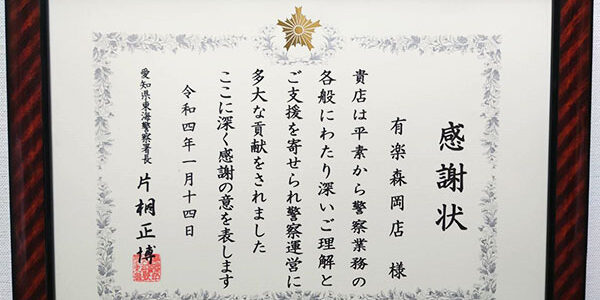 感謝状
有楽森岡店 様
貴店は平素から警察業務の
各般にわたり深いご理解と
ご支援を寄せられ警察運営に
多大な貢献をされました
ここに深く感謝の意を表します
令和四年一月十四日
愛知県東海警察署長 片桐正博